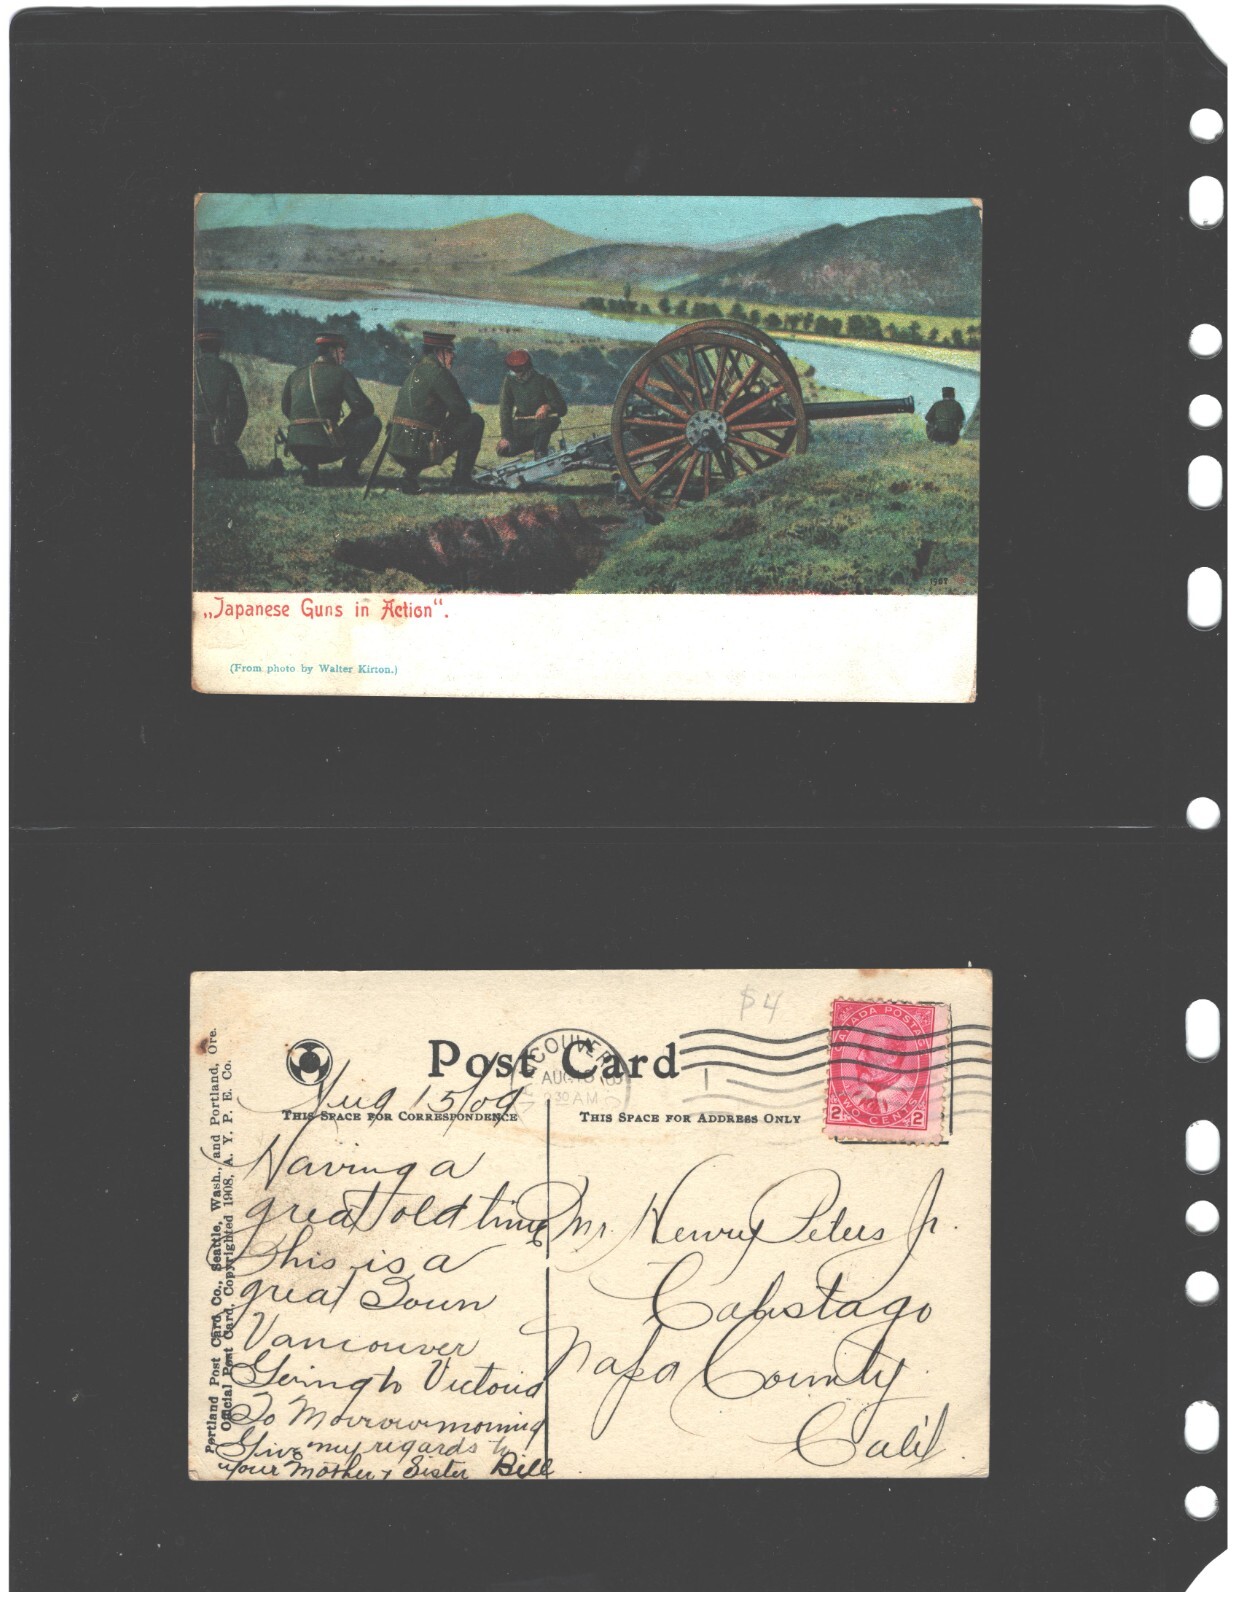 1907
„Japanese Guns in Action“.
(From photo by Walter Kirton.)
$4
Post Card
COUVER
AUG 16
30 AM
CANADA POSTAGE
2 TWO CENTS 2
Aug 15/09
THIS SPACE FOR CORRESPONDENCE
THIS SPACE FOR ADDRESS ONLY
Portland Post Card Co., Seattle, Wash., and Portland, Ore.
Official Post Card, Copyrighted 1908, A. Y. P. E. Co.
Having a
great old time
This is a
great Town
Vancouver
Going to Victoria
To Morrow morning
Give my regards to
your Mother & Sister Bill
Mr. Henry Peters Jr.
Calistago
Napa County
Calif